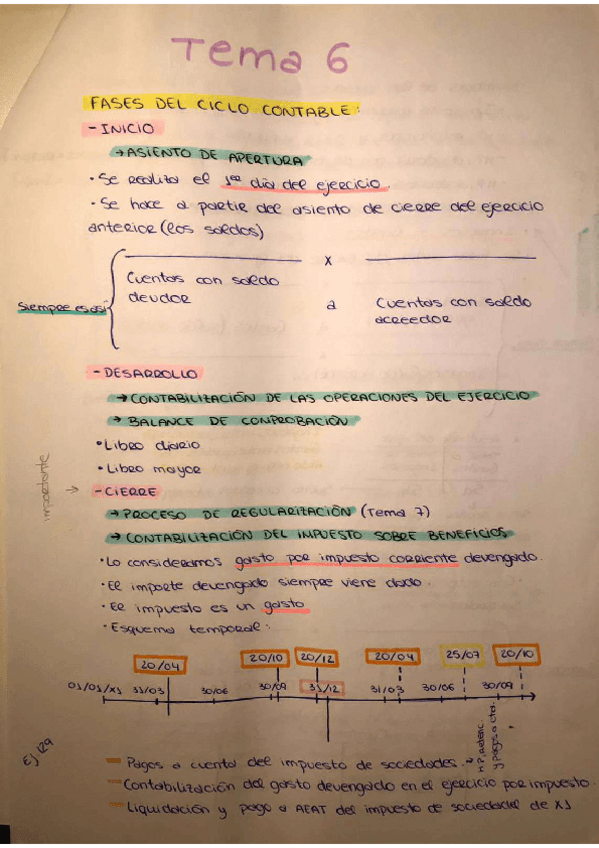 Tema 6
FASES DEL CICLO CONTABLE:
- INICIO
→ ASIENTO DE APERTURA
• Se realiza el 1er día del ejercicio.
• Se hace a partir del asiento de cierre del ejercicio
anterior (los saldos)
x
Cuentas con saldo
deudor
Siempre es así
a
Cuentas con saldo
acreedor
- DESARROLLO
→ CONTABILIZACIÓN DE LAS OPERACIONES DEL EJERCICIO
→ BALANCE DE COMPROBACIÓN
• Libro diario
• Libro mayor
importante →
- CIERRE
→ PROCESO DE REGULARIZACIÓN (Tema 7)
→ CONTABILIZACIÓN DEL IMPUESTO SOBRE BENEFICIOS
• Lo consideramos gasto por impuesto corriente devengado.
• El importe devengado siempre viene dado.
• El impuesto es un gasto
• Esquema temporal:
20/04 20/10 20/12 20/04 25/07 20/10
01/01/X1 31/03 30/06 30/09 31/12 31/03 30/06 30/09
Ej 129
- Pagos a cuenta del impuesto de sociedades.
H.P, retenc.
y pagos a cta.
- Contabilización del gasto devengado en el ejercicio por impuesto.
- Liquidación y pago a AEAT del impuesto de sociedades de X1